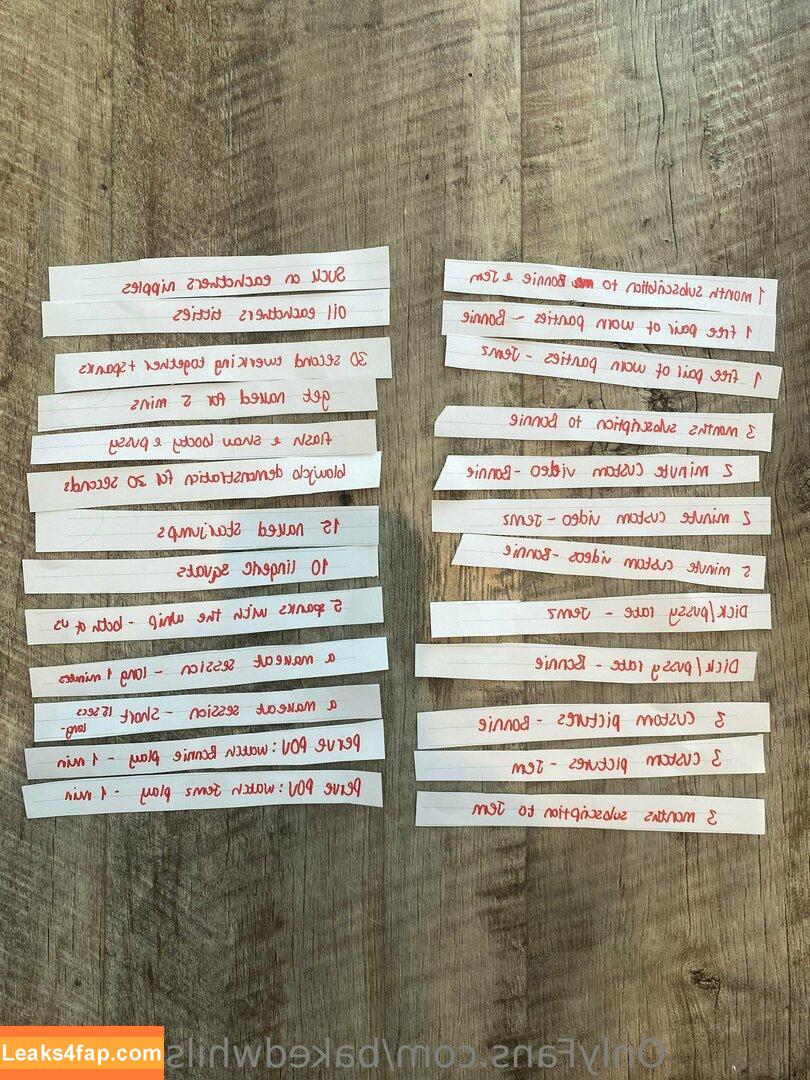 Suck on eachothers nipples
Oil eachothers titties
30 second twerking together + spanks
get naked for 5 mins
flash & show booty & pussy
blowjob demonstration for 30 seconds
15 naked starjumps
10 lingerie squats
5 spanks with the whip - both of us
a makeout session - long 1 minutes
a makeout session - short 15 secs long-
Perve POV: watch Bonnie play - 1 min
Perve POV: watch Jemz play - 1 min
1 month subscription to Bonnie & Jem
1 free pair of worn panties - Bonnie
1 free pair of worn panties - Jemz
3 months subscription to Bonnie
2 minute custom video - Bonnie
2 minute custom video - Jemz
5 minute custom videos - Bonnie
Dick/pussy rate - Jemz
Dick/pussy rate - Bonnie
3 custom pictures - Bonnie
3 custom pictures - Jem
3 months subscription to Jem
OnlyFans.com/bakedwhils
Leaks4fap.com